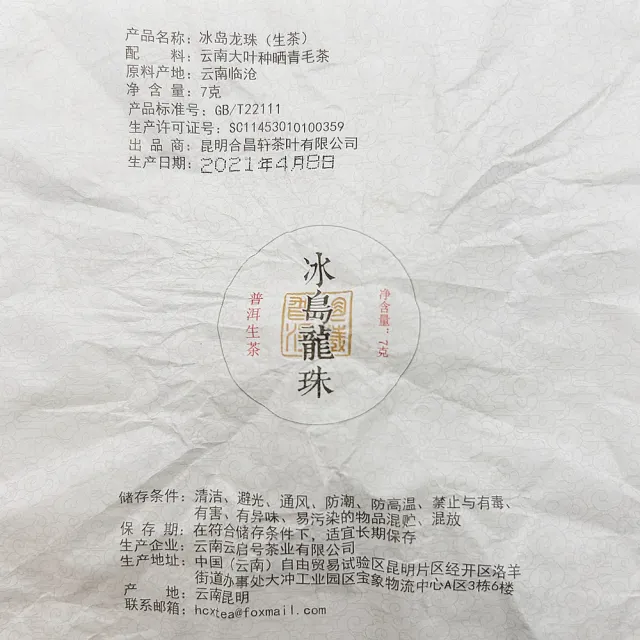 产品名称：冰岛龙珠（生茶）
配　　料：云南大叶种晒青毛茶
原料产地：云南临沧
净 含 量：7克
产品标准号：GB/T22111
生产许可证号：SC11453010100359
出 品 商：昆明合昌轩茶叶有限公司
生产日期：2021年4月8日
冰島龍珠
普洱生茶
净含量：7克
储存条件：清洁、避光、通风、防潮、防高温、禁止与有毒、
有害、有异味、易污染的物品混贮、混放
保 存 期：在符合储存条件下，适宜长期保存
生产企业：云南云启号茶业有限公司
生产地址：中国（云南）自由贸易试验区昆明片区经开区洛羊
街道办事处大冲工业园区宝象物流中心A区3栋6楼
产　　地：云南昆明
联系邮箱：hcxtea@foxmail.com